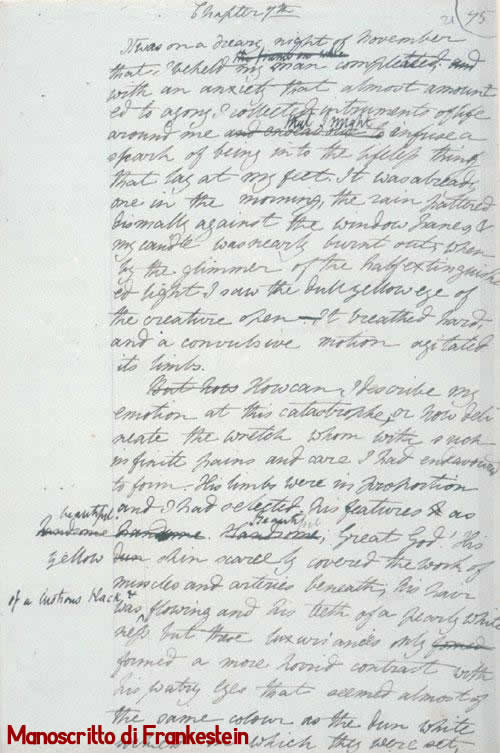 Chapter 7th
21 75
It was on a dreary night of November
the frame on whic
that I beheld my man compleated; and
with an anxiety that almost amount
ed to agony, I collected instruments of life
that I might
around me and endeavour to infuse a
spark of being into the lifeless thing
that lay at my feet. It was already
one in the morning, the rain pattered
dismally against the window panes, &
my candle was nearly burnt out, when
by the glimmer of the half extinguish
ed light I saw the dull yellow eye of
the creature open – It breathed hard,
and a convulsive motion agitated
its limbs.
But how How can I describe my
emotion at this catastrophe; or how deli
neate the wretch whom with such
infinite pains and care I had endeavoured
to form. His limbs were in proportion
and I had selected his features & as
beautiful
handsome handsome. Handsome, Beautiful; Great God! His
yellow dun skin scarcely covered the work of
muscles and arteries beneath; his hair
of a lustrous black, &
was flowing and his teeth of a pearly white
ness but these luxuriances only formed
formed a more horrid contrast with
his watry eyes that seemed almost of
the same colour as the dun white
sockets in which they were set
Manoscritto di Frankestein